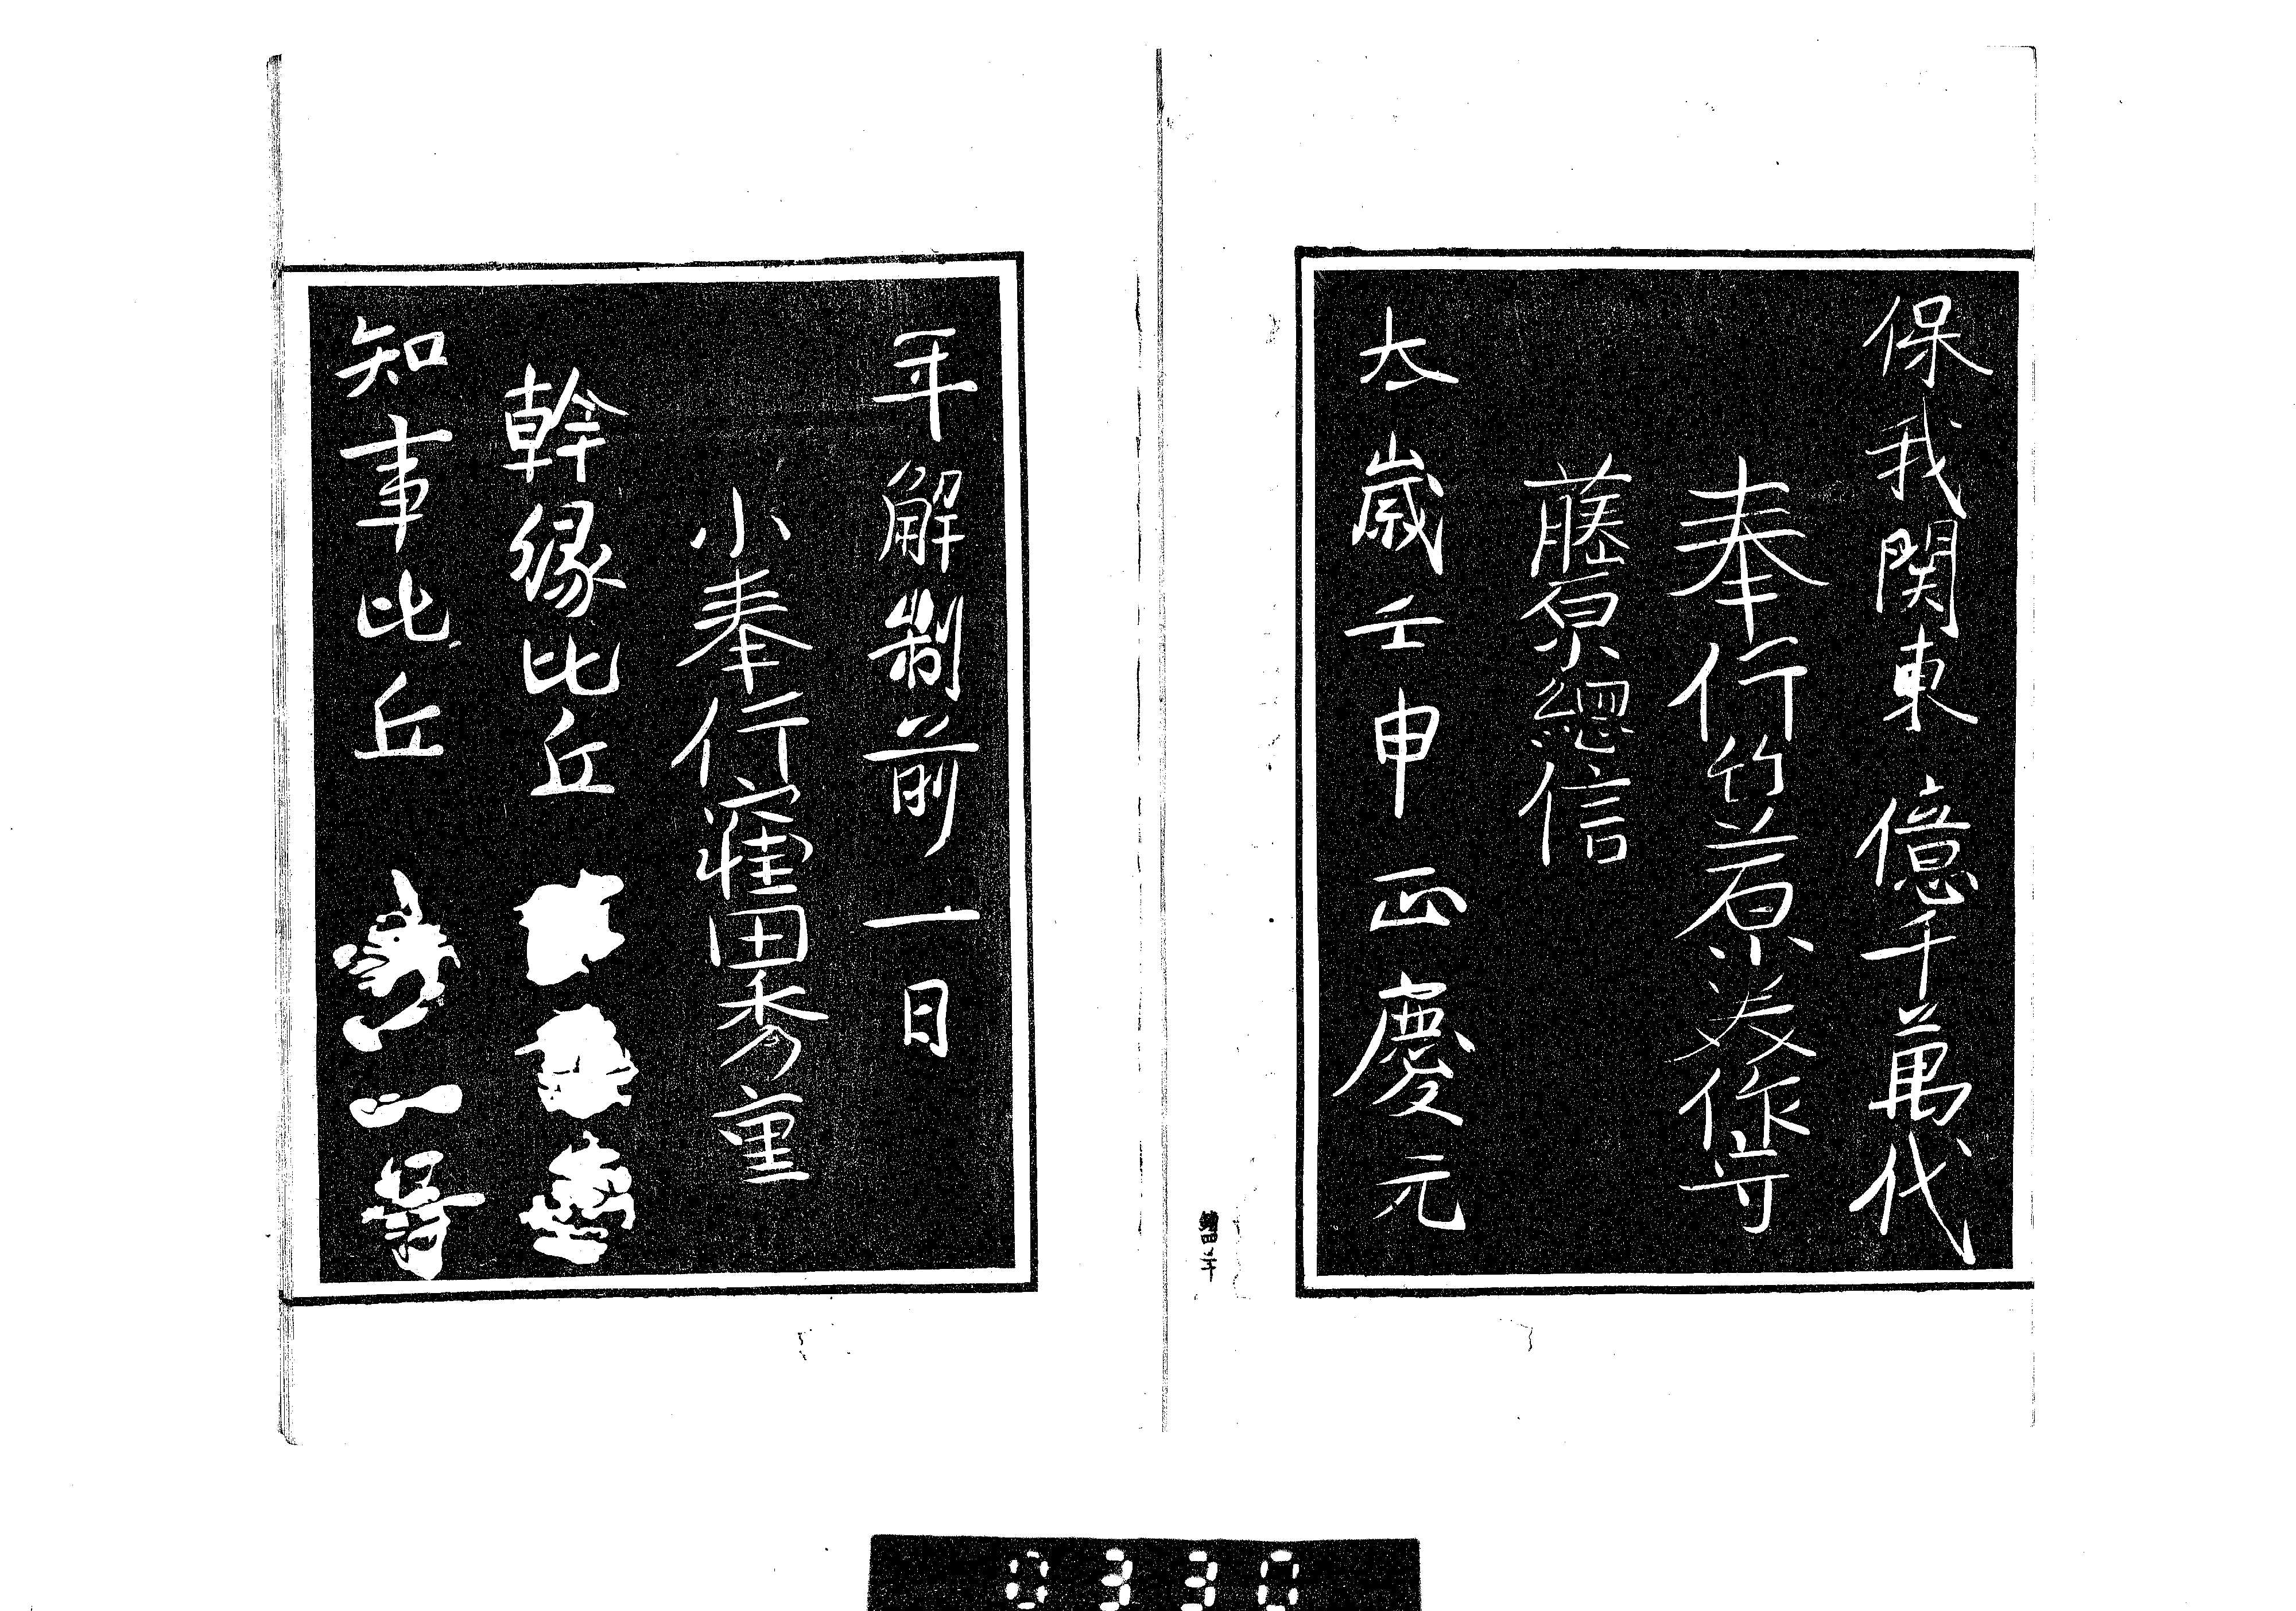 保我関東億千萬代
奉行竹原美作守
藤原總信
太歳壬申正慶元
年解制前一日
小奉行窪田秀重
幹縁比丘
知事比丘
0330